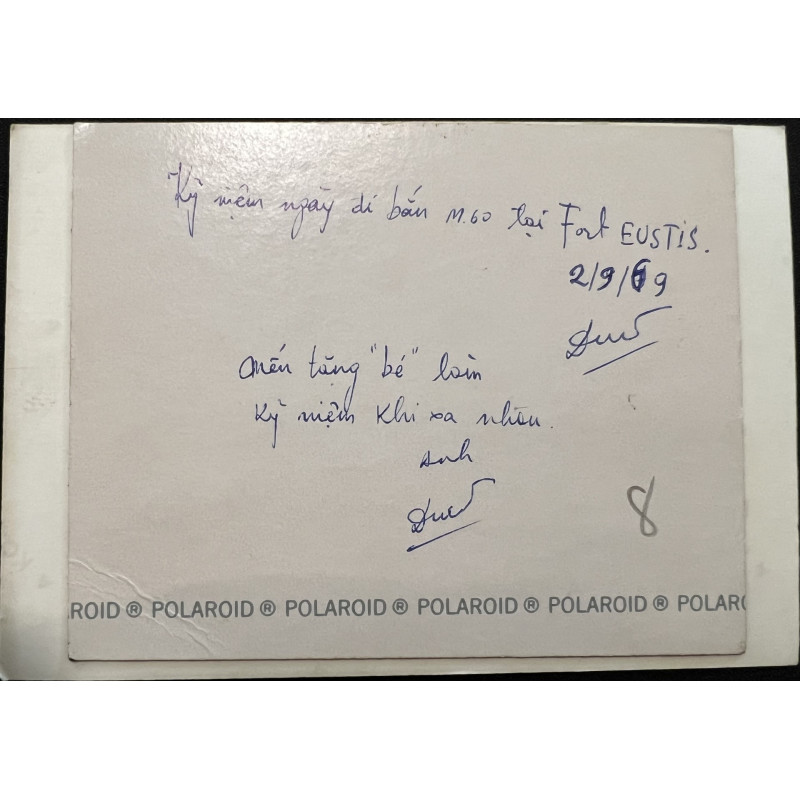 Kỷ niệm ngày đi bắn M.60 tại Fort EUSTIS.
2/9/69
Mến tặng "bé" loàn
Kỷ niệm khi xa nhau.
Anh
8
ROID ® POLAROID ® POLAROID ® POLAROID ® POLAROID ® POLAR